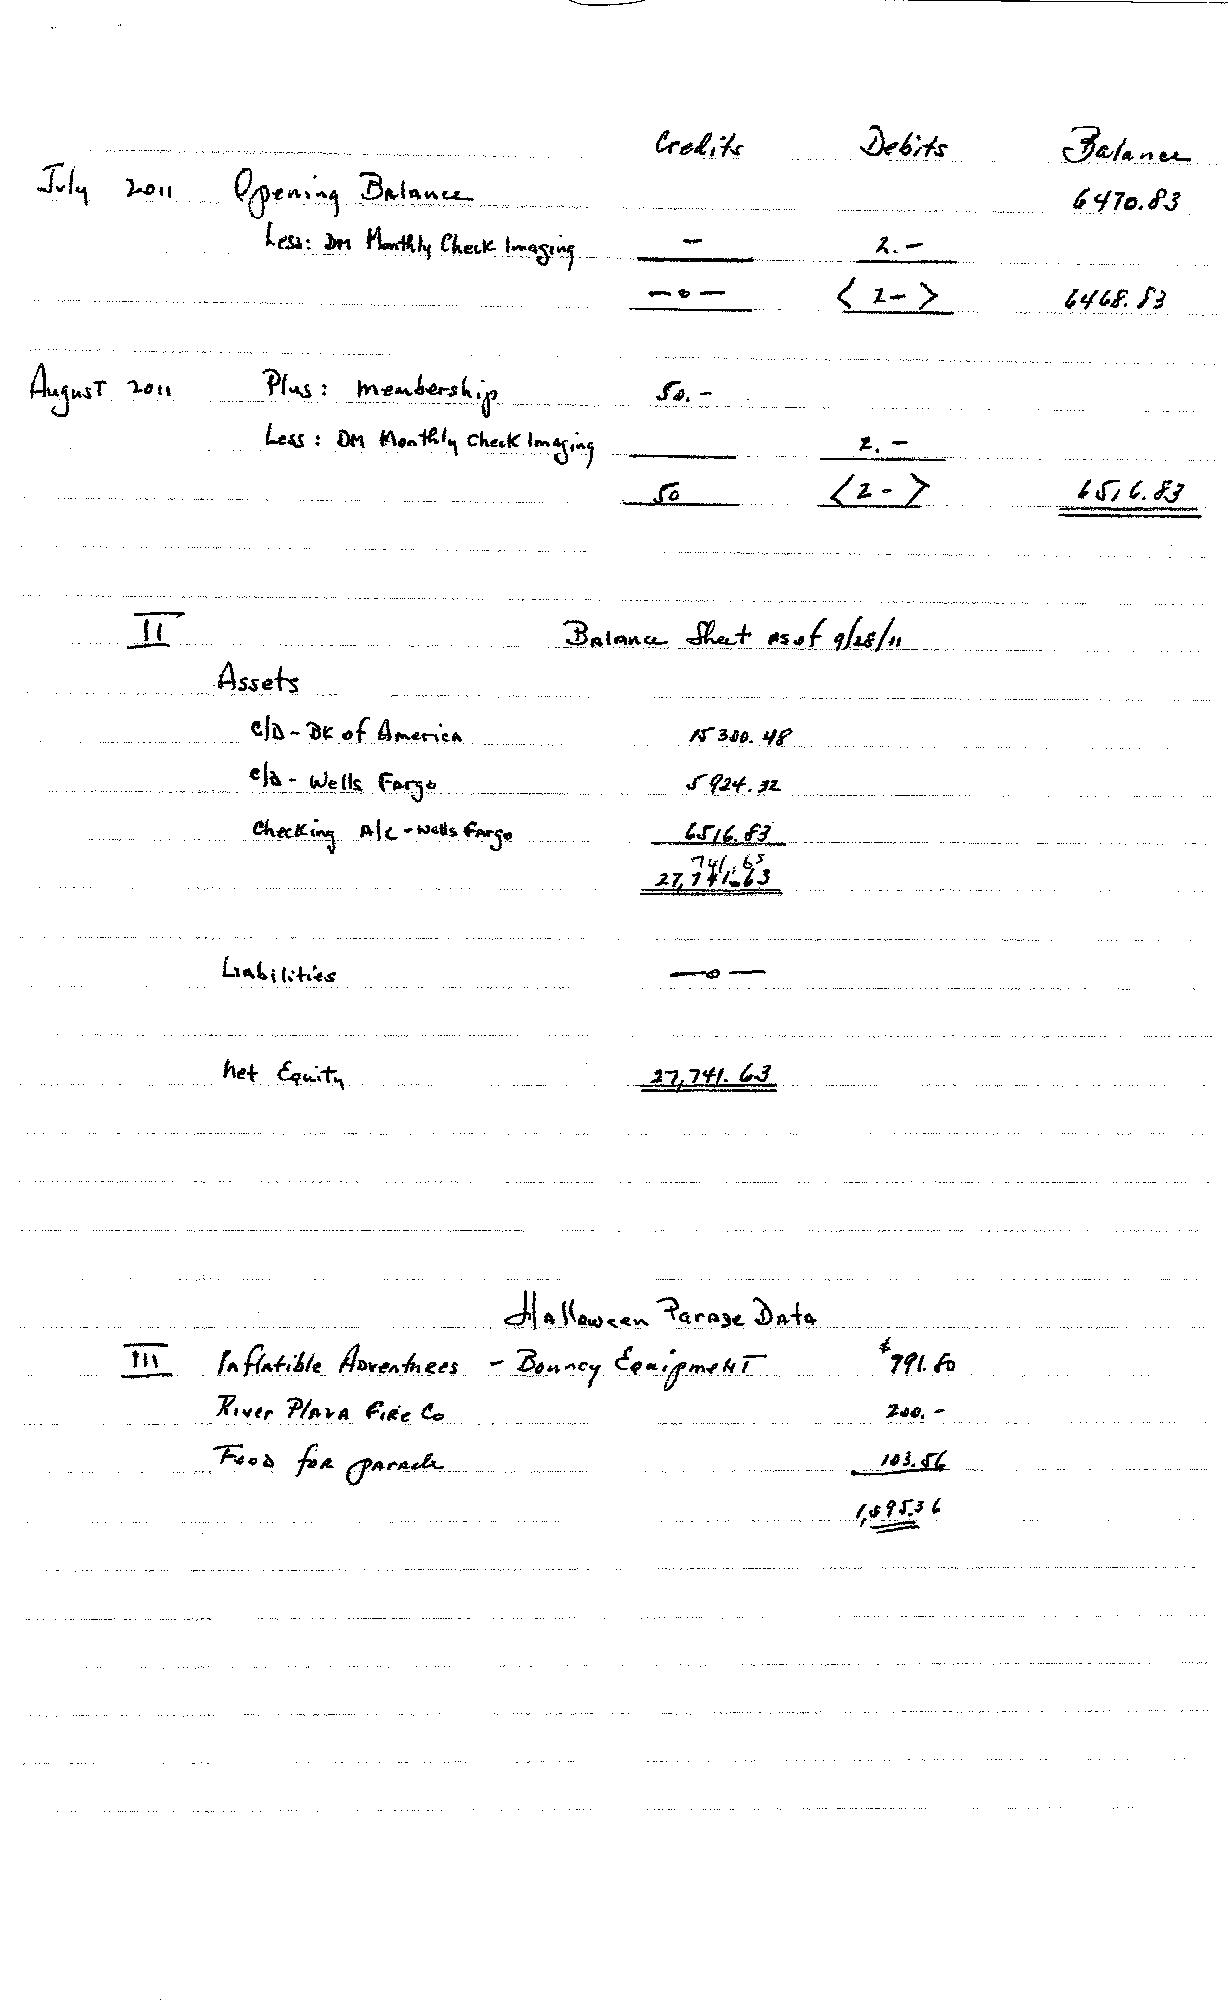 Credits Debits Balance
July 2011 Opening Balance 6470.83
Less: DM Monthly Check Imaging - 2.-
-0- <2-> 6468.83
August 2011 Plus: Membership 50.-
Less: DM Monthly Check Imaging 2.-
50 <2-> 6516.83
II Balance Sheet as of 9/28/11
Assets
C/D - BK of America 15300.48
C/D - Wells Fargo 5924.32
Checking A/C - Wells Fargo 6516.83
741.63
27,741.63
Liabilities -0-
Net Equity 27,741.63
Halloween Parade Data
III Inflatible Adventures - Bouncy Equipment $791.80
River Plaza Fire Co 200.-
Food for parade 103.56
1,095.36